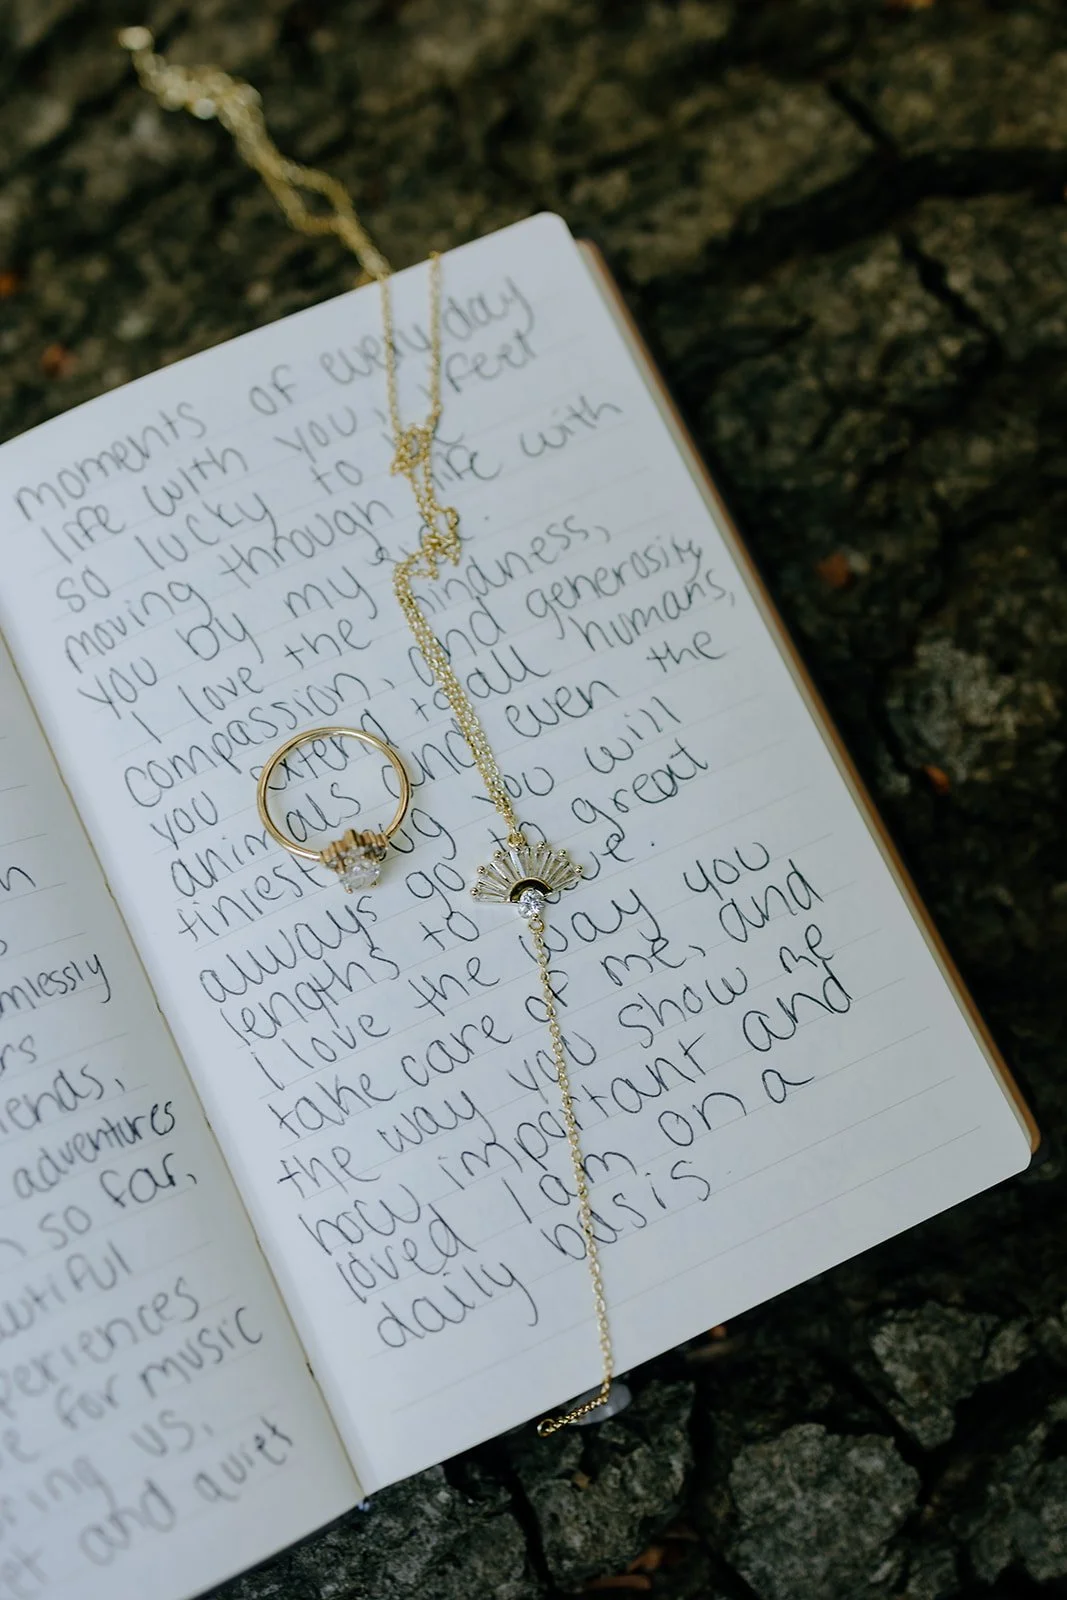 n
s
mlessly
rs
iends,
adventures
n so far,
autiful
periences
e for music
bring us,
et and quiet
moments of everyday
life with you, I feel
so lucky to be
moving through life with
you by my side.
I love the kindness,
compassion, and generosity
you extend to all humans,
animals and even the
tiniest bug you will
always go to great
lengths to save.
I love the way you
take care of me, and
the way you show me
how important and
loved I am on a
daily basis